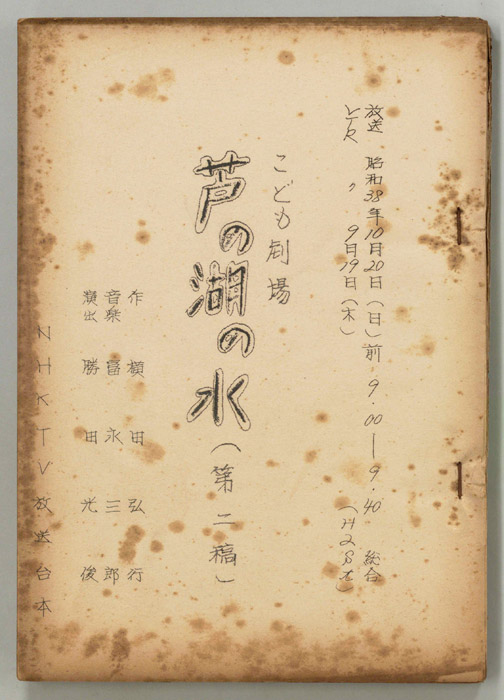 放送 昭和38年10月20日(日)前 9.00―9.40 総合
VTR 〃 9月19日(木)
こども劇場
芦の湖の水(第二稿)
作 横田弘行
音楽 冨永三郎
演出 勝田光俊
NHKTV放送台本